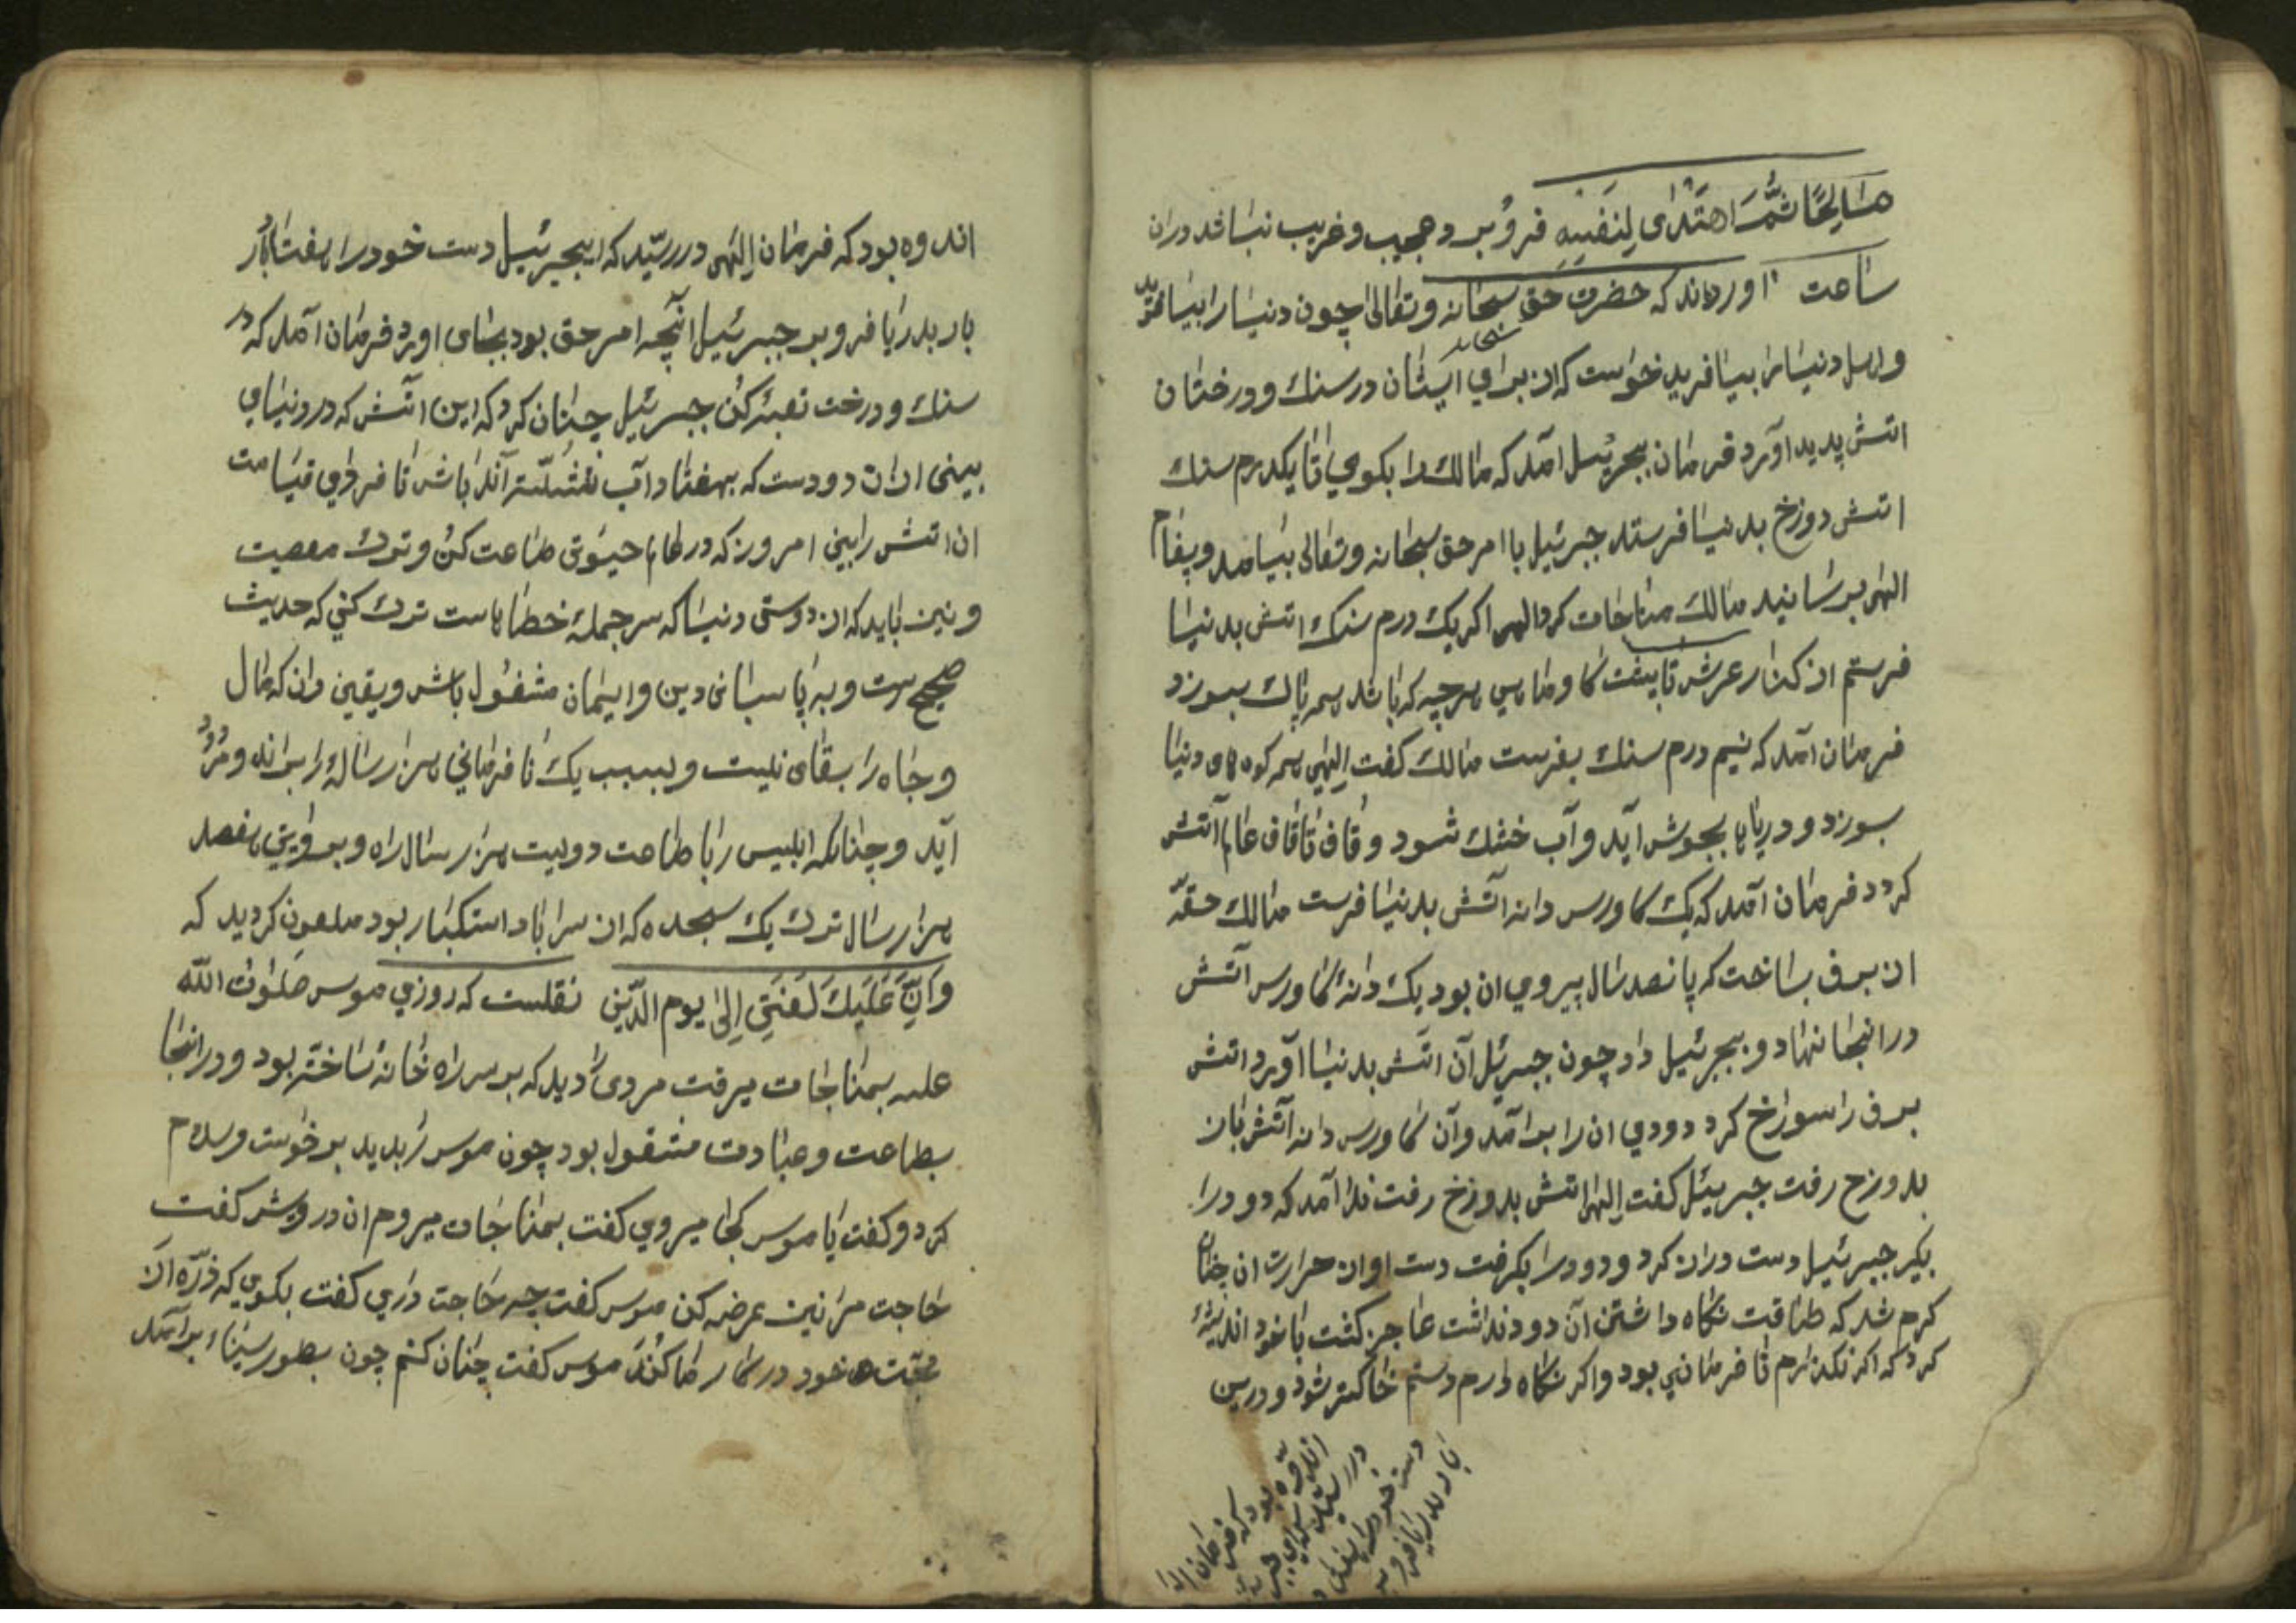 صَالِحًا ثُمَّ اهتَدٰی لِنَفسِهِ فروبر و عجیب و غریب نباشد دران
ساعت اورده‌اند که حضرت حق سبحانه وتعالی چون دنیا را بیافرید
واهل دنیا را بیافرید خواست که از برای ایشان در سنك و درختان
اتش پدید اورد فرمان بجبرئیل امد که مالك را بکوی تا یکدرم سنك
اتش دوزخ بدنیا فرستد جبرئیل با امر حق سبحانه وتعالی بیامد و پیغام
الهی برسانید مالك مناجات کرد الهی اکر یک درم سنك اتش بدنیا
فرستم از کنار عرش تا بپشت کاو و ماهی هرچه که باشد همه پاك بسوزد
فرمان آمد که نیم درم سنك بفرست مالك کفت الهی همه کوه های دنیا
بسوزد و دریاها بجوش آید و آب خشك شود و قاف تا قاف عالم آتش
کردد فرمان آمد که یک کاورس دانه آتش بدنیا فرست مالك حقّه
از برف بساخت که پانصد سال پیروی ان بود یک دانهٔ کاورس آتش
در انجا نهاد و بجبرئیل داد چون جبرئیل آن اتش بدنیا آورد اتش
برف را سوراخ کرد دودی ان را برآمد و آن کاورس دانه آتش باز
بدوزخ رفت جبرئیل کفت الهی اتش بدوزخ رفت ندا آمد که دود را
بکیر جبرئیل دست دراز کرد و دود را بکرفت دست او از حرارت ان چنان
کرم شد که طاقت نکاه داشتن آن دود نداشت عاجز کشت با خود اندیشهٔ
کرد که اکر نکذارم نا فرمانی بود و اکر نکاه دارم دستم خاکستر شود و درین
اندوه بود که فرمان الهی
در رسید که ای جبرئیل
دست خود را هفتاد
بار بدریا فرو بر
اندوه بود که فرمان الهی در رسید که ایجبرئیل دست خود را هفتاد
بار بدریا فرو بر جبرئیل آنچه امر حق بود بجای اورد فرمان آمد که در
سنك و درخت تعبیه کن جبرئیل چنان کرد که این اتش که در دنیای
بینی ازان دودست که بهفتاد آب شسته‌اند باش تا فردای قیامت
ان اتش را بینی امروز که در عالم حیوتی طاعت کن و ترك معصیت
و نیز باید که از دوستی دنیا که سر جملهٔ خطاهاست ترك کنی که حدیث
صحیح است و به پاسبانی دین و ایمان مشغول باش و یقین دان که مال
و جاه را بقای نیست و بسبب یک نا فرمانی هزار سالهٔ را براند و مردود
آید و چنانکه ابلیس را با طاعت دویست هزار سال راه و بروایتی هفصد
هزار سال ترك یك سجده که از سر اباد استکبار بود ملعون کردید که
وَاِنَّ عَلَیكَ لَعنَتِی اِلٰی یوم الدّین نقلست که روزی موسی صلوٰت اللّٰه
علیه بمناجات میرفت مردی را دید که بر سر راه خانهٔ ساخته بود و در انجا
بطاعت و عبادت مشغول بود چون موسی را بدید برخواست و سلام
کرد و کفت یا موسی کجا میروی کفت بمناجات میروم ان درویش کفت
حاجت مرا نیز عرضه کن موسی کفت چه حاجت داری کفت بکوی که ذرّهٔ از
محبّت خود در کار ما کند موسی کفت چنان کنم چون بطور سیناء برآمد